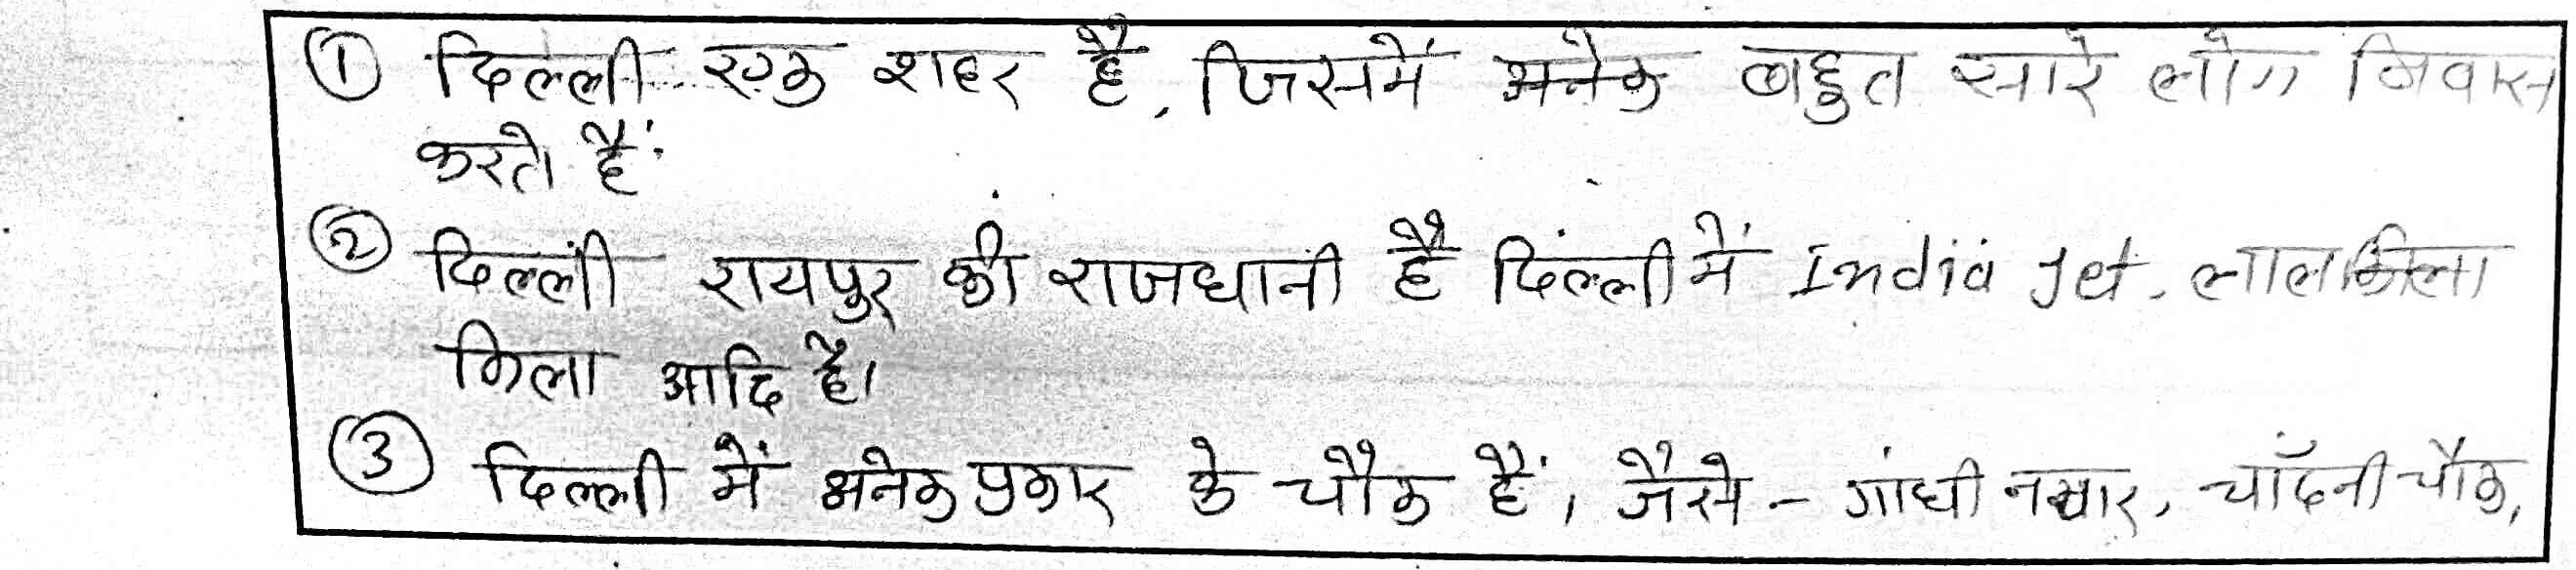 ① दिल्ली एक शहर है, जिसमें अनेक बहुत सारे लोग निवास
करते हैं
② दिल्ली रायपुर की राजधानी है दिल्ली में India Jet, लाल
किला आदि है।
③ दिल्ली में अनेक प्रकार के चौक हैं, जैसे - गांधी चाँदनी चौक,